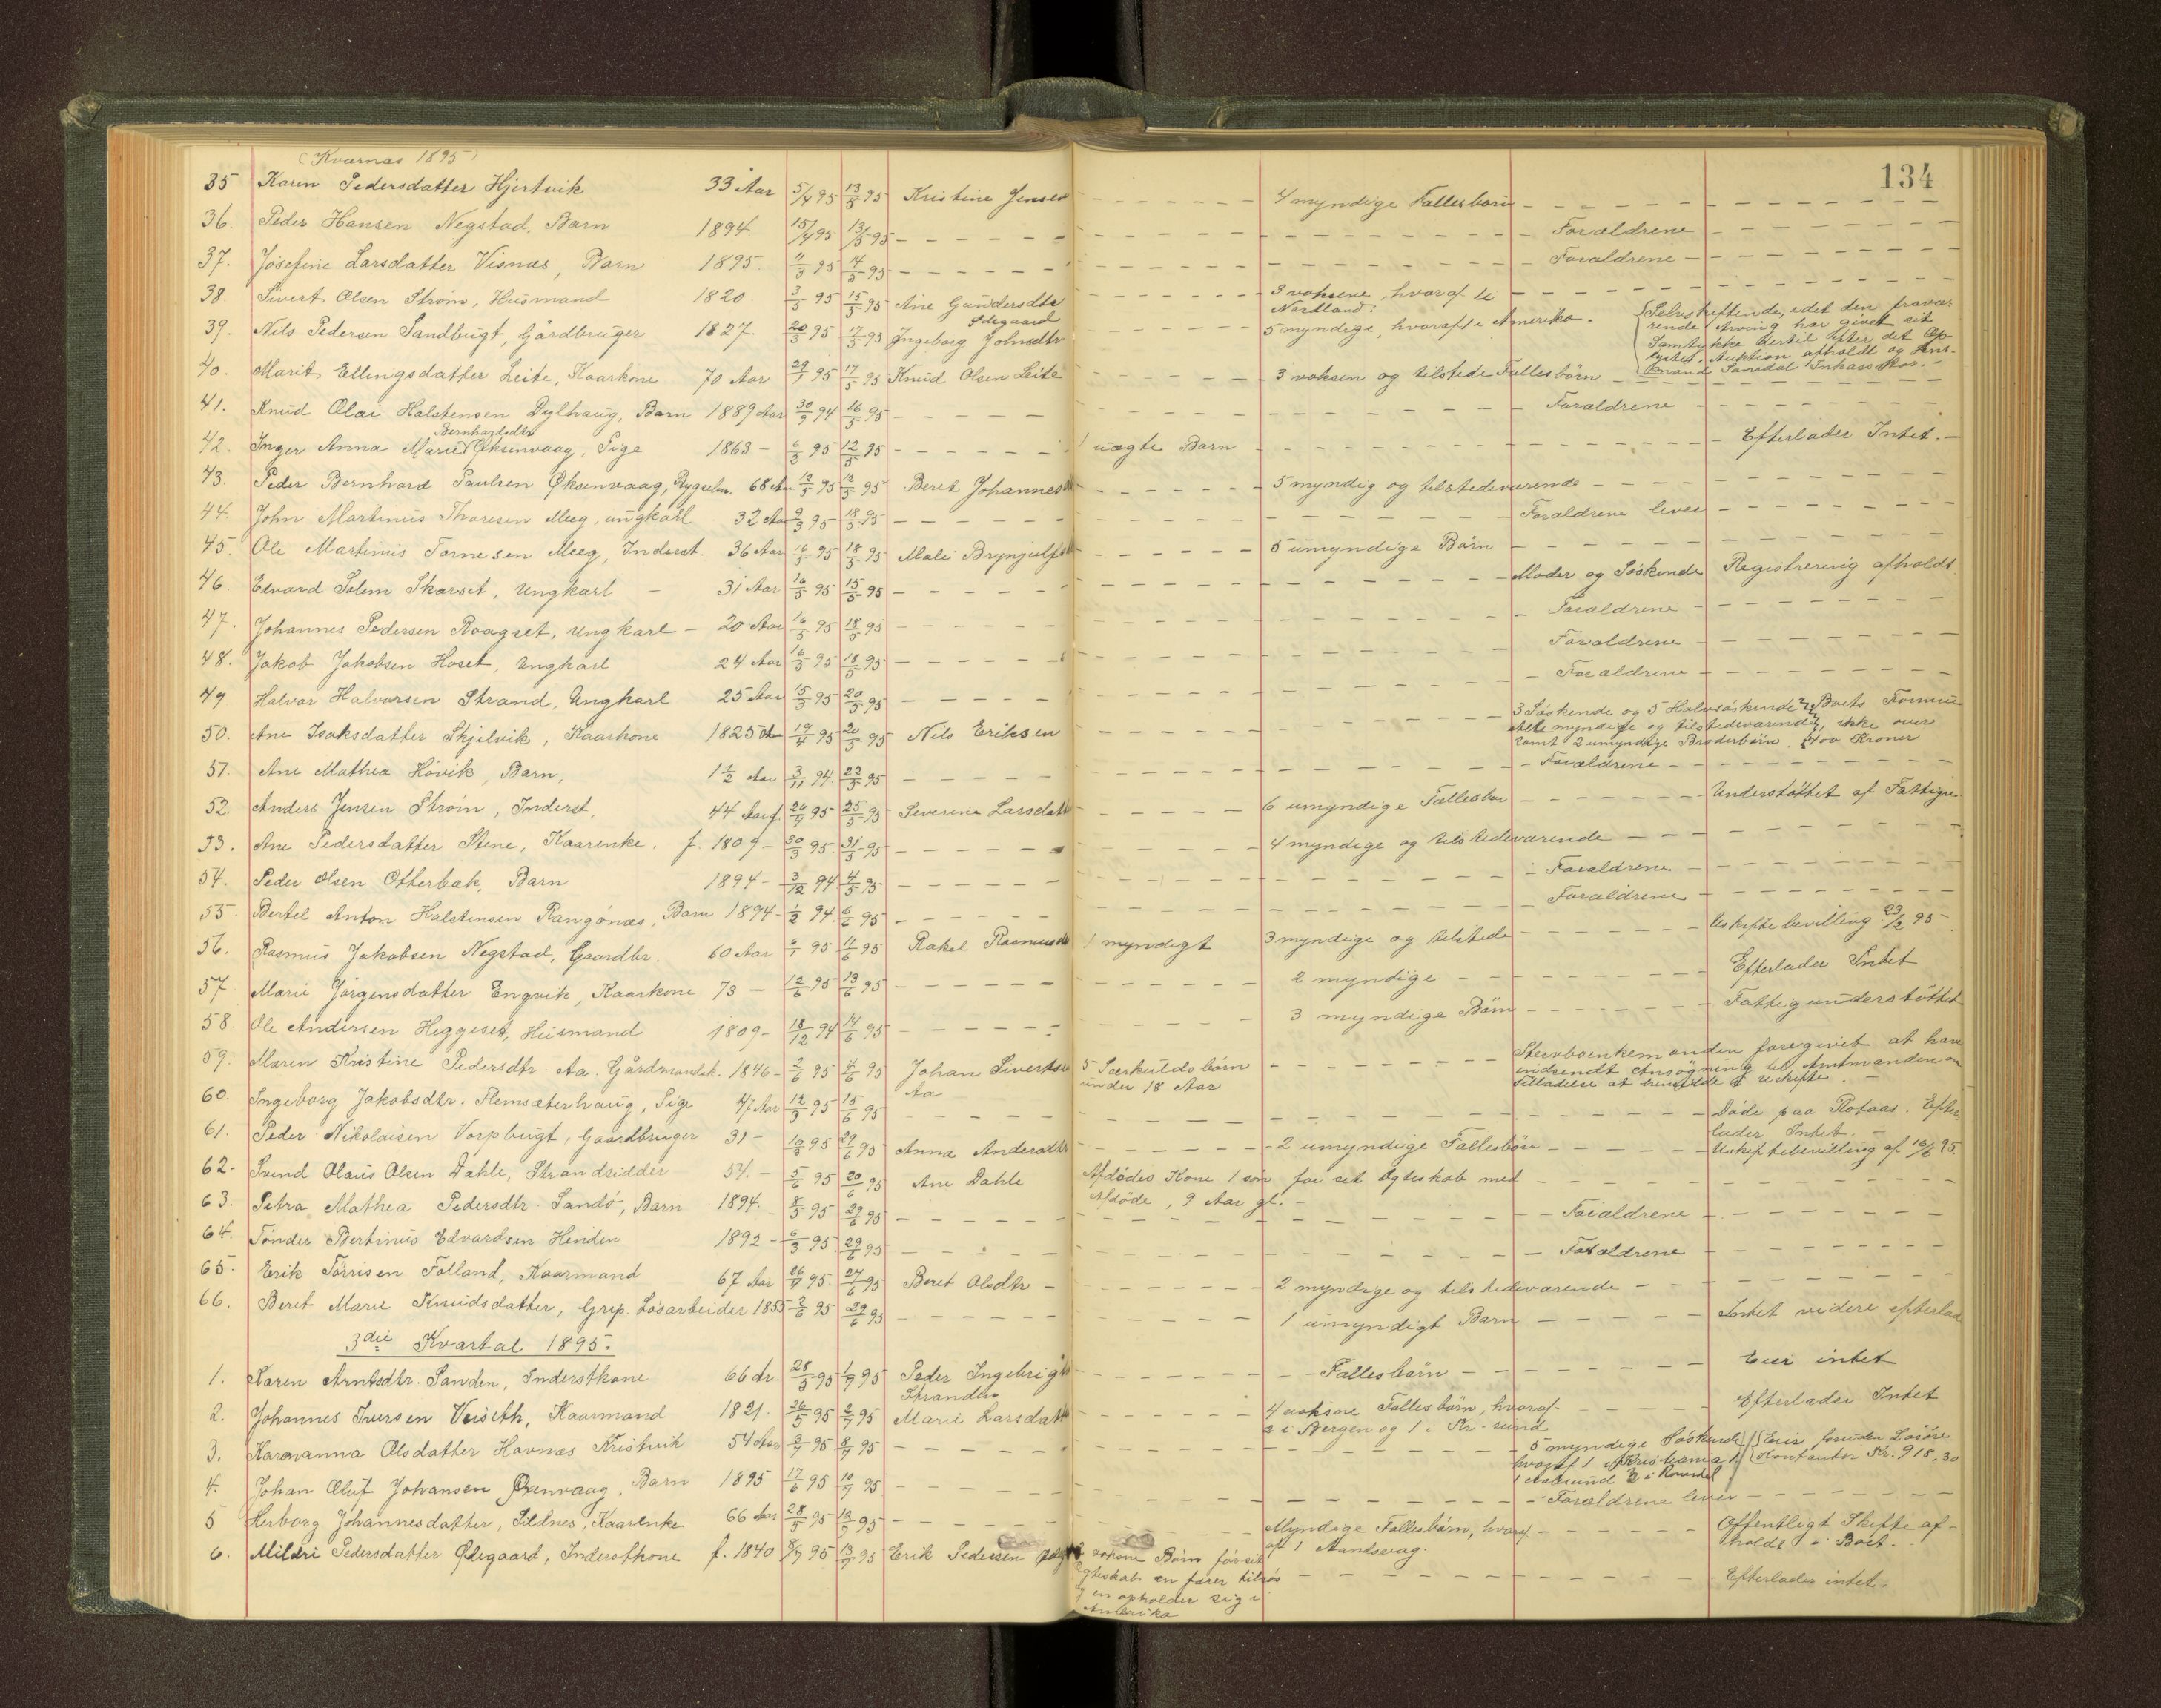 134
(Kværnæs 1895)
35 Karen Pedersdatter Hjertvik 33 Aar 5/4 95 13/5 95 Kristine Jensen - 4 myndige Fællesbørn -
36. Peder Hansen Negstad, Barn 1894. 15/4 95 13/5 95 - Forældrene -
37. Josefine Larsdatter Visnæs, Barn 1895. 11/3 95 14/5 95 - Forældrene -
38. Sivert Olsen Strøm, Husmand 1820 3/5 95 15/5 95 Ane Gundersdtr - 3 voksene, hvoraf 1 i Nordland. -
39. Nils Pedersen Sandbugt, Gårdbruger 1827. 20/3 95 17/5 95 Ingeborg Johnsdtr Ødegaard - 5 myndige, hvoraf 1 i Amerika. - Selvskiftende, idet den fravæ-
rende Arving har givet sit
Samtykke dertil efter det Op-
lyste. Auktion afholdt og Lens-
mand Sandal Inkassator. -
40. Marit Ellingsdatter Leite, Kaarkone 70 Aar 29/1 95 17/5 95 Knud Olsen Leite - 3 voksen og tilstede Fællesbörn -
41. Knud Olai Halstensen Dylhaug, Barn 1889 Aar 30/9 94 16/5 95 - Forældrene -
42. Inger Anna Marie Bernhardsdtr Øksenvaag, Pige 1863 - 6/3 95 12/5 95 - 1 uægte Barn - Efterlader Intet. -
43. Peder Bernhard Paulsen Øksenvaag, 68 Aar 12/5 95 12/5 95 Beret Johannesd - 5 myndig og tilstedeværende -
44. John Martinus Thoresen Meeg, ungkarl 32 Aar 9/3 95 18/5 95 - Forældrene lever -
45. Ole Martinus Tornesen Meeg, Inderst. 36 Aar 16/3 95 18/5 95 Mali Brynjulfsd - 5 umyndige Børn -
46. Edvard Solem Skarset, Ungkarl - 31 Aar 16/3 95 15/5 95 - Moder og Søskende Registrering afholdt.
47. Johannes Pedersen Roagset, Ungkarl - 20 Aar 16/3 95 18/5 95 - Forældrene -
48. Jakob Jakobsen Hoset, Ungkarl 24 Aar 16/3 95 18/5 95 - Forældrene -
49 Halvor Halvorsen Strand, Ungkarl 25 Aar 15/3 95 20/5 95 - Forældrene -
50. Ane Isaksdatter Skjelvik, Kaarkone 1825 19/4 95 20/5 95 Nils Eriksen - 3 Søskende og 5 Halvsøskende Boets Formue
Alle myndige og tilstedeværende, ikke over
samt 2 umyndige Broderbørn. 400 Kroner
51. Ane Mathea Hövik, Barn, 1 1/2 Aar 3/11 94. 22/5 95 - Forældrene -
52. Anders Jensen Strøm, Inderst, 44 Aar 26/4 95 25/5 95 Severine Larsdatt - 6 umyndige Fællesbør - Understøttet af Fattigv.
53. Ane Pedersdatter Stene, Kaarenke. f. 1809 - 30/3 95. 31/5 95 - 4 myndige og tilstedeværende -
54. Peder Olsen Otterbæk, Barn 1894 - 3/12 94 4/5 95 - Forældrene -
55. Bertel Anton Halstensen Rangönæs, Barn 1894 - 1/2 94. 6/6 95 - Forældrene -
56. Rasmus Jakobsen Negstad, Gaardbr. 60 Aar 6/1 95 11/6 95 Rakel Rasmusd 1 myndigt 3 myndige og tilstede - Uskiftebevilling 23/2 95 -
57. Marie Jørgensdatter Engvik, Kaarkone 73 - 12/6 95 13/6 95 - 2 myndige - Efterlader Intet
58. Ole Andersen Heggeset, Husmand 1809 - 18/12 94 14/6 95 - 3 myndige Börn - Fattigunderstöttet
59. Maren Kristine Pedersdtr Aa. Gårdmandsk. 1846 - 3/6 95 4/6 95 Johan Sivertsen Aa 5 Særkuldsbörn under 18 Aar - Stervboenkemanden foregivet at have
indsendt Ansøgning til Amtmanden om
Tilladelse at hensidde i uskifte. -
60. Ingeborg Jakobsdtr. Flemsæterhaug, Pige 47 Aar 12/3 95 15/6 95 - Døde paa Rotaas. Efter-
lader Intet. -
61. Peder Nikolaisen Vorpbugt, Gaardbruger 31 - 16/3 95 29/6 95 Anna Andersdtr - 2 umyndige Fællesbörn - Uskiftebevilling af 16/6 95.
62. Svend Olaus Olsen Dahle, Strandsidder 54. - 5/6 95 20/6 95 Ane Dahle Afdödes Kone 1 søn før sit Ægteskab med
Afdøde, 9 Aar gl. -
63. Petra Mathea Pedersdtr Sandö, Barn 1894. 8/5 95 29/6 95 - Forældrene -
64. Tönder Bertinus Edvardsen Henden 1892 - 6/3 95 29/6 95 - Forældrene
65. Erik Törrisen Folland, Kaarmand 67 Aar 26/4 95. 24/6 95 Beret Olsdtr - 2 myndige og tilstedeværende -
66. Beret Marie Knudsdatter, Grip. Løsarbeider 1855 2/6 95 29/6 95 - 1 umyndigt Barn - Intet videre efterlad
3die Kvartal 1895.
1. Karen Arntsdtr. Sanden, Inderstkone 66 Ar. 28/5 95 1/7 95 Peder Ingebrigts Stranden - Fællesbörn - Eier intet
2. Johannes Iversen Veiseth, Kaarmand 1821. 26/5 95 2/7 95 Marie Larsdatt - 4 voksne Fællesbörn, hvoraf
2 i Bergen og 1 i Kr-sund - Efterlader Intet
3. Karenanna Olsdatter Havnæs Kristvik 54 Aar 3/7 95 8/7 95 - 5 myndige Søskende
hvoraf 1 i Kristiania 1
1 Aalesund 2 i Romsdal Eier foruden Løsöre
Kontanter Kr. 918,30
4. Johan Oluf Johansen Øxenvaag, Barn 1895 17/6 95 10/7 95 - Forældrene lever -
5 Herborg Johannesdatter, Sildnes, Kaarenke 66 Aar 28/5 95 12/7 95 - Myndige Fællesbörn, hvoraf
af 1 Aandsvag. Offentligt Skifte af-
holdt i Boet.
6. Mildri Pedersdatter Ødegaard, Inderstkone f. 1840 8/7 95 13/7 95 Erik Pedersen voksne Børn før sit
Ægteskab en farer tilsøs
og en opholder sig i
Amerika - Efterlader intet.